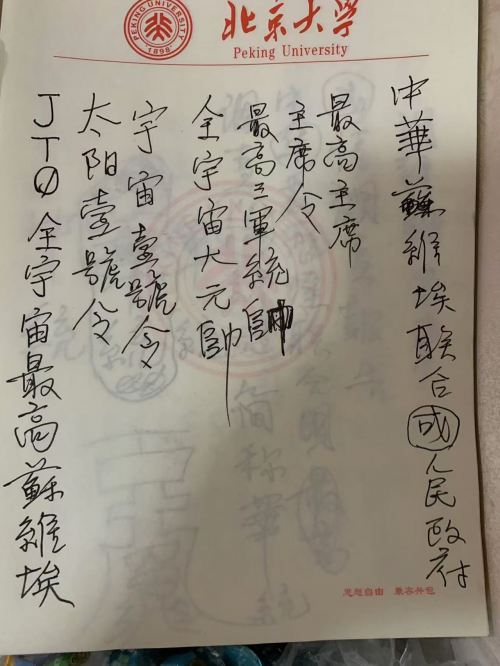 PEKING UNIVERSITY
1898
北京大学
Peking University
中華蘇維埃联合國人民政府
最高主席
主席令
最高三軍統帥
全宇宙大元帥
宇宙壹號令
太阳壹號令
JTØ全宇宙最高蘇維埃
思想自由 兼容并包